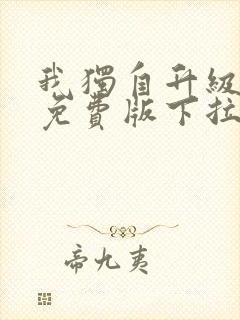 我獨自升級
免費版下拉
帝九夷